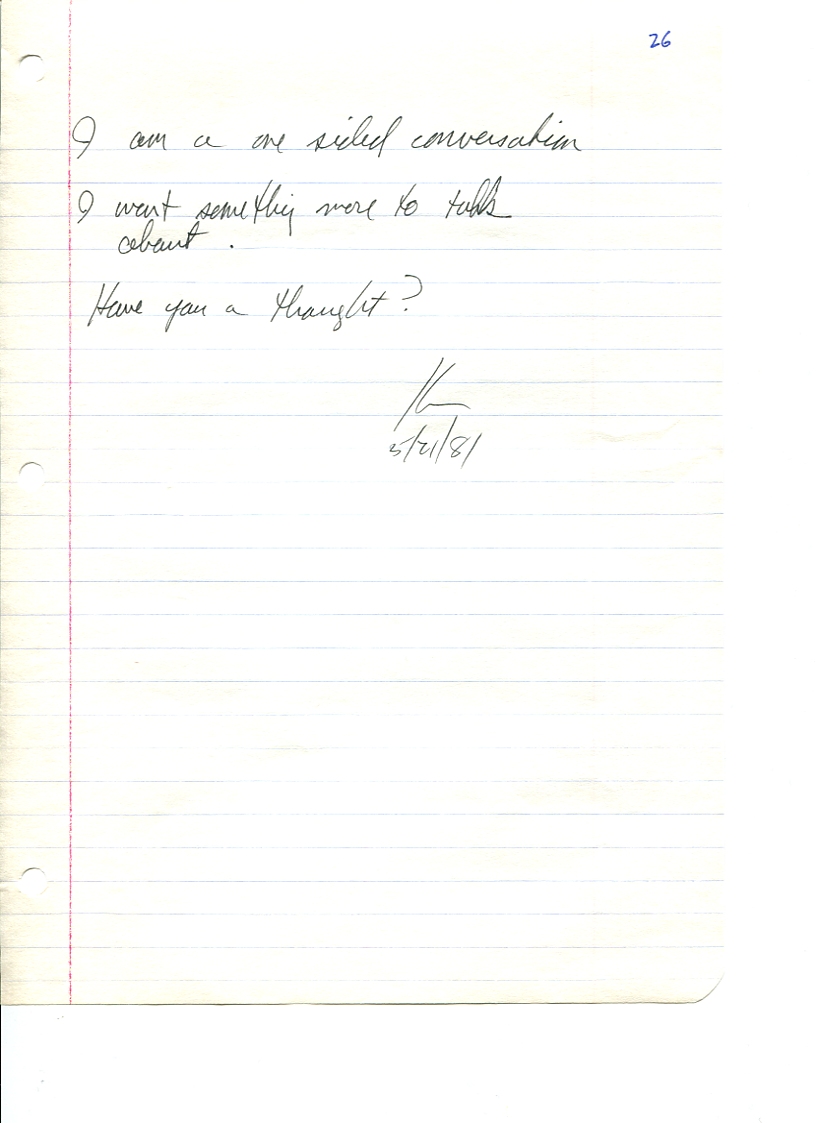 26
I am a one sided conversation
I want something more to talk
about .
Have you a thought?
5/21/81